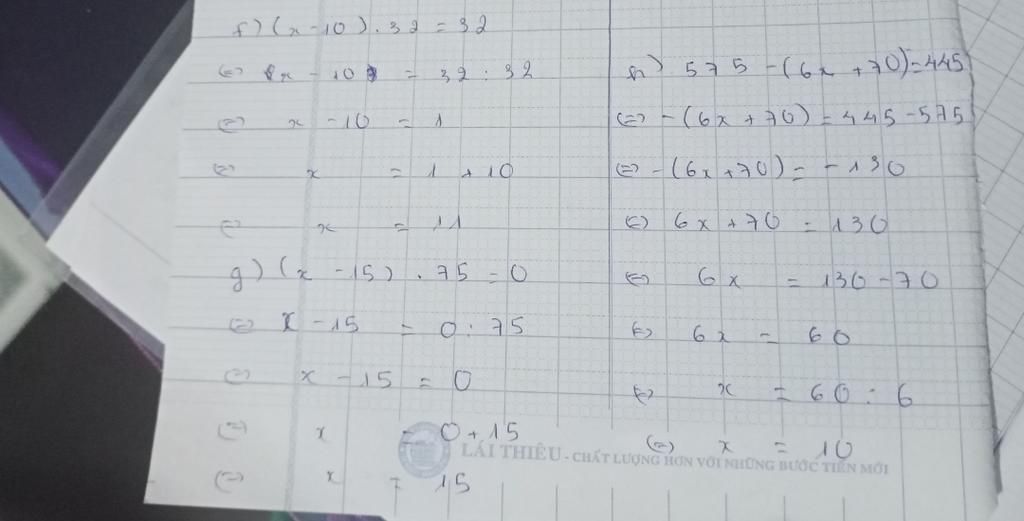 f) (x - 10) . 32 = 32
⇔ x - 10 = 32 : 32
⇔ x - 10 = 1
⇔ x = 1 + 10
⇔ x = 11
g) (x - 15) . 75 = 0
⇔ x - 15 = 0 : 75
⇔ x - 15 = 0
⇔ x = 0 + 15
⇔ x = 15
h) 575 - (6x + 70) = 445
⇔ - (6x + 70) = 445 - 575
⇔ - (6x + 70) = - 130
⇔ 6x + 70 = 130
⇔ 6x = 130 - 70
⇔ 6x = 60
⇔ x = 60 : 6
⇔ x = 10
LÁI THIÊU - CHẤT LƯỢNG HƠN VỚI NHỮNG BƯỚC TIẾN MỚI